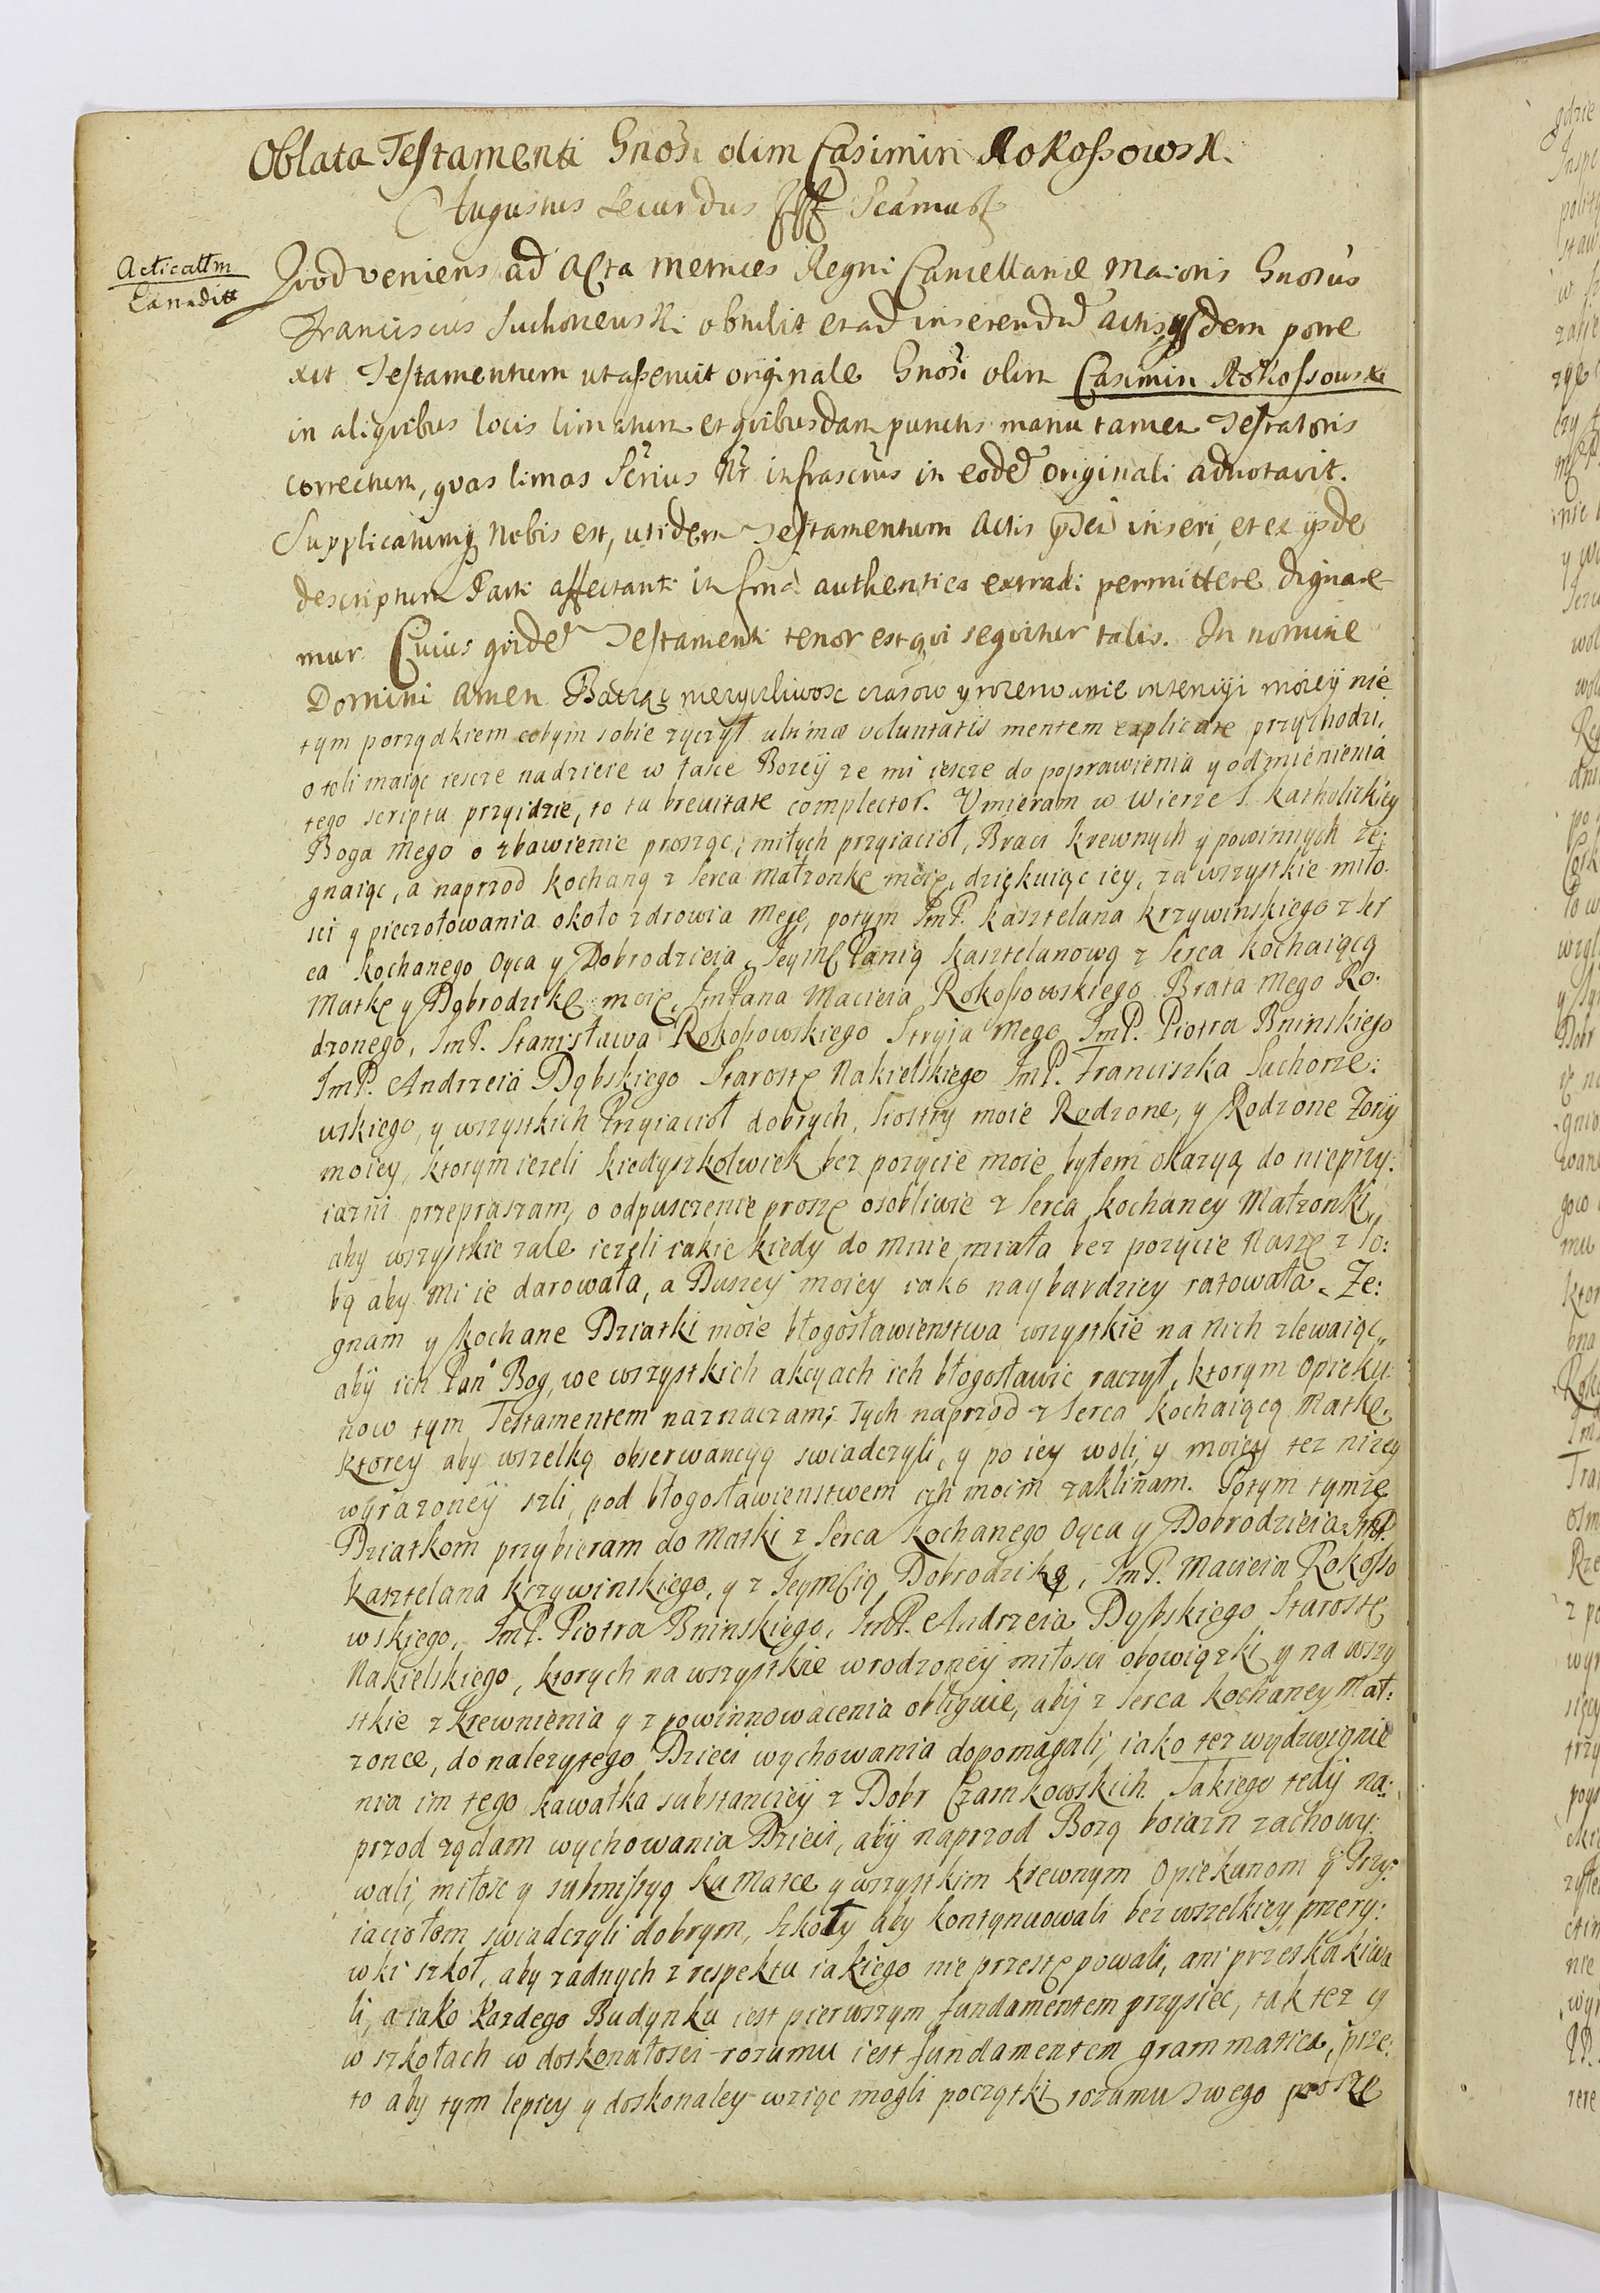 Oblata Testamenti Gnosi olim Casimiri Rokossowski
Augustus Secundus
Acticatum
Quod veniens ad Acta Metrices Regni Cancellariæ Maioris Gnosus
Franciscus Suchorzewski obtulit et ad inserendũ Actis ysdem porre
xit Testamentum ut asseruit originale Gnosi olim Casimiri Rokossowski
in aliquibus locis limatum et quibusdam punctis manu tamen Testatoris
correctum, quas limas Scrius Nr infrascrus in eodẽ originali adnotavit.
Supplicatumq Nobis est, ut idem Testamentum Actis inseri, et ex ysde
descriptum Parti affectanti in forma authentica extradi permittere digna re
mur. Cuius quidẽ Testamenti tenor est qui sequitur talis. In nomine
Domini Amen. Bacząc nieżyczliwosc czasow y rozerwanie intencyi moiey nie
tym porządkiem cobym sobie zyczył ultimæ voluntatis mentem explicare przychodzi,
o toli maiąc iescze nadzieie w łasce Bozey ze mi iescze do poprawienia y odmienienia
tego scriptu przyidzie, to tu brevitate complector. Vmieram w Wierze S. Katholickiey
Boga mego o zbawienie prosząc, miłych przyiacioł, Braci krewnych y powinnych że:
gnaiąc, a naprzod kochaną z serca małzonkę moię, dziękuiąc iey, za wszystkie miło.
sci y pieczołowania około zdrowia mego, potym ImP. kasztelana krzywinskiego z ser
ca kochanego Oyca y Dobrodzieia, Ieymć Panią kasztelanową z serca kochaiącą
Matkę y Dobrodzikę moię, ImPana Macieia Rokossowskiego Brata mego Ro:
dzonego, ImP. Stanisława Rokossowskiego Stryja mego ImP. Piotra Bninskiego
ImP. Andrzeia Dąbskiego Starostę Nakielskiego ImP. Franciszka Suchorze:
wskiego, y wszystkich Przyiacioł dobrych, siostry moie Rodzone, y Rodzone Zony
moiey, ktorym iezeli kiedyszkolwiek bez pozycie moie byłem okazyą do nieprzy:
iazni przepraszam, o odpusczenie proszę osobliwie z serca kochaney Małzonki,
aby wszystkie zale iezeli iakie kiedy do mnie miała bez pozycie Nasze z so:
bą aby mi ie darowała, a Duszey moiey iako naybardziey ratowała. Że:
gnam y kochane Dziatki moie błogosławienstwa wszystkie na nich zlewaiąc,
aby ich Pan Bog, we wszystkich akcyach ich błogosławic raczył, ktorym Opieku:
now tym Testamentem naznaczam; Tych naprzod z serca kochaiącą Matkę,
ktorey aby wszelką obserwancyą swiadczyli, y po iey woli, y moiey tez nizey
wyrazoney szli, pod błogosławienstwem ich moim zaklinam. Potym tymze
Dziatkom przybieram do Matki z serca kochanego Oyca y Dobrodzieia ImP.
kasztelana krzywinskiego, y z Ieymścią Dobrodziką, ImP. Macieia Rokosso
wskiego, ImP. Piotra Bninskiego, ImP. Andrzeia Dąbskiego Starostę
Nakielskiego, ktorych na wszystkie wrodzoney miłosci obowiązki y na wszy
stkie zkrewnienia y z powinnowacenia obliguie, aby z serca kochaney Mał:
zonce, do nalezytego Dzieci wychowania dopomagali, iako tez wydzwignie
nia im tego kawałka substanciey z Dobr Czarnkowskich. Takiego tedy na:
przod ządam wychowania Dzieci, aby naprzod Bozą boiazn zachowy:
wali, miłosc y submissyą ku Matce y wszystkim krewnym Opiekunom y Przy:
iaciołom swiadczyli dobrym, Szkoły aby kontynuowali bez wszelkiey przery:
wki szkoł, aby zadnych z respektu iakiego nie przestępowali, ani przeskakiwa
li, a iako kazdego Budynku iest pierwszym fundamentem przysiec, tak tez y
w szkołach w doskonałosci rozumu iest fundamentem grammatica, prze:
to aby tym lepiey y doskonaley wziąc mogli początki rozumu swego proszę